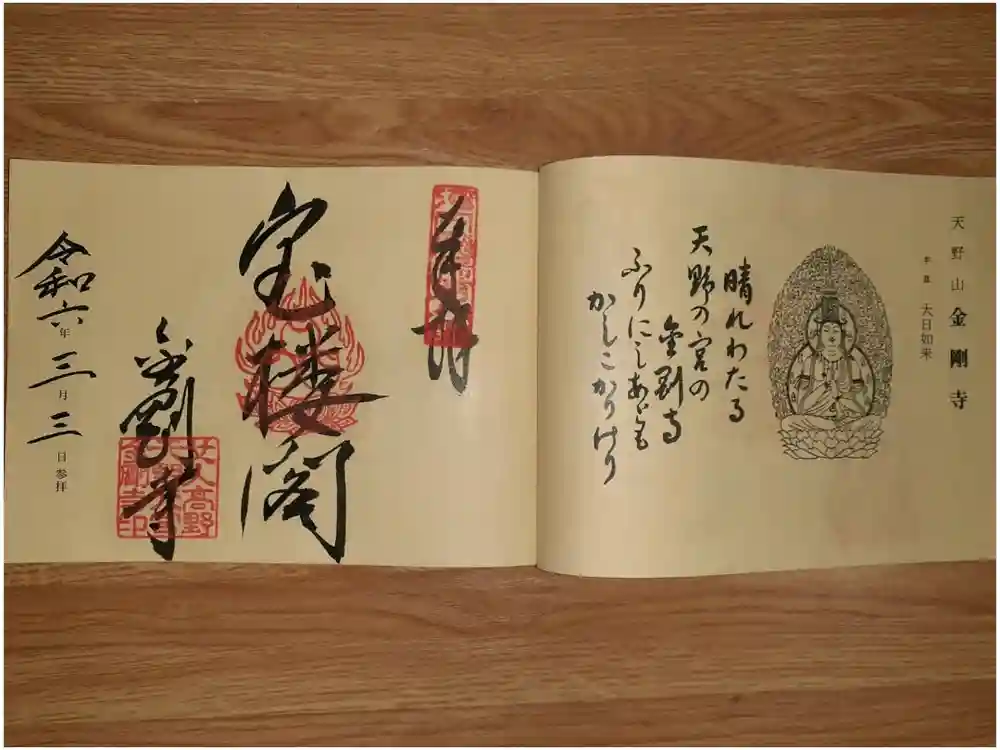 天野山 金剛寺
本尊 大日如来
晴れわたる
天野の宮の
金剛寺
ふりにしあとも
かしこかりけり
奉拝
宝楼閣
金剛寺
女人高野
金剛寺印
令和六年三月三日参拝